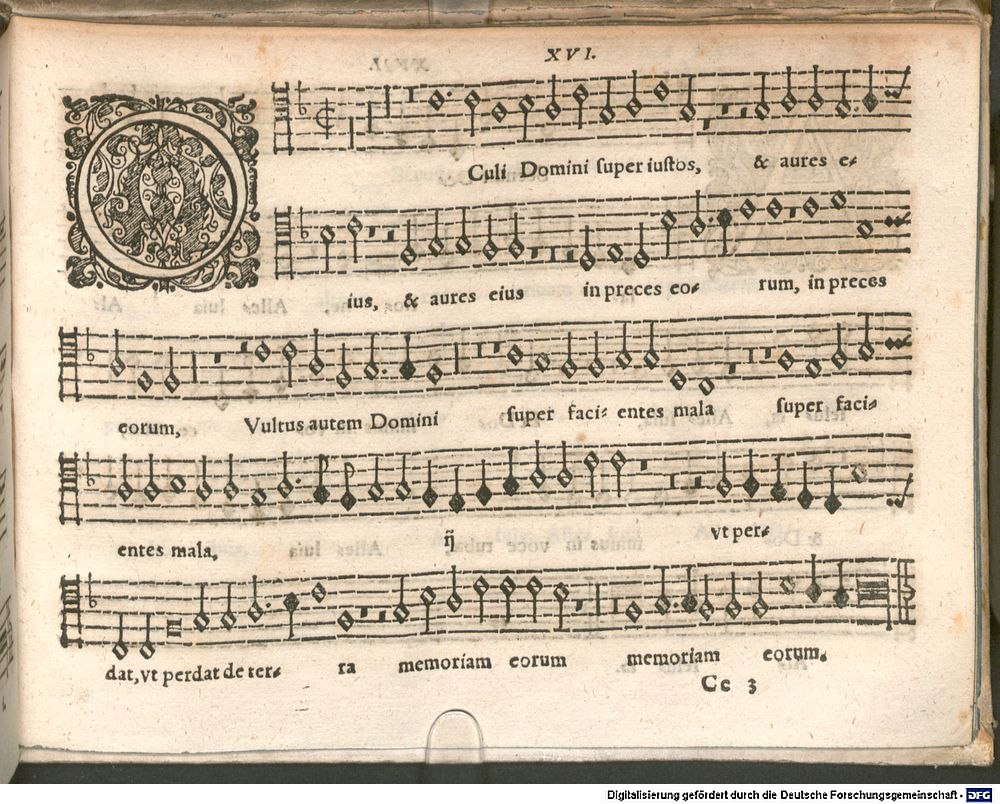 XVI.
OCuli Domini super iustos, & aures e-
ius, & aures eius in preces eo- rum, in preces
eorum, Vultus autem Domini super faci- entes mala super faci-
entes mala, ij̃ vt per-
dat, vt perdat de ter- ra memoriam eorum memoriam eorum.
Cc 3
Digitalisierung gefördert durch die Deutsche Forschungsgemeinschaft - DFG